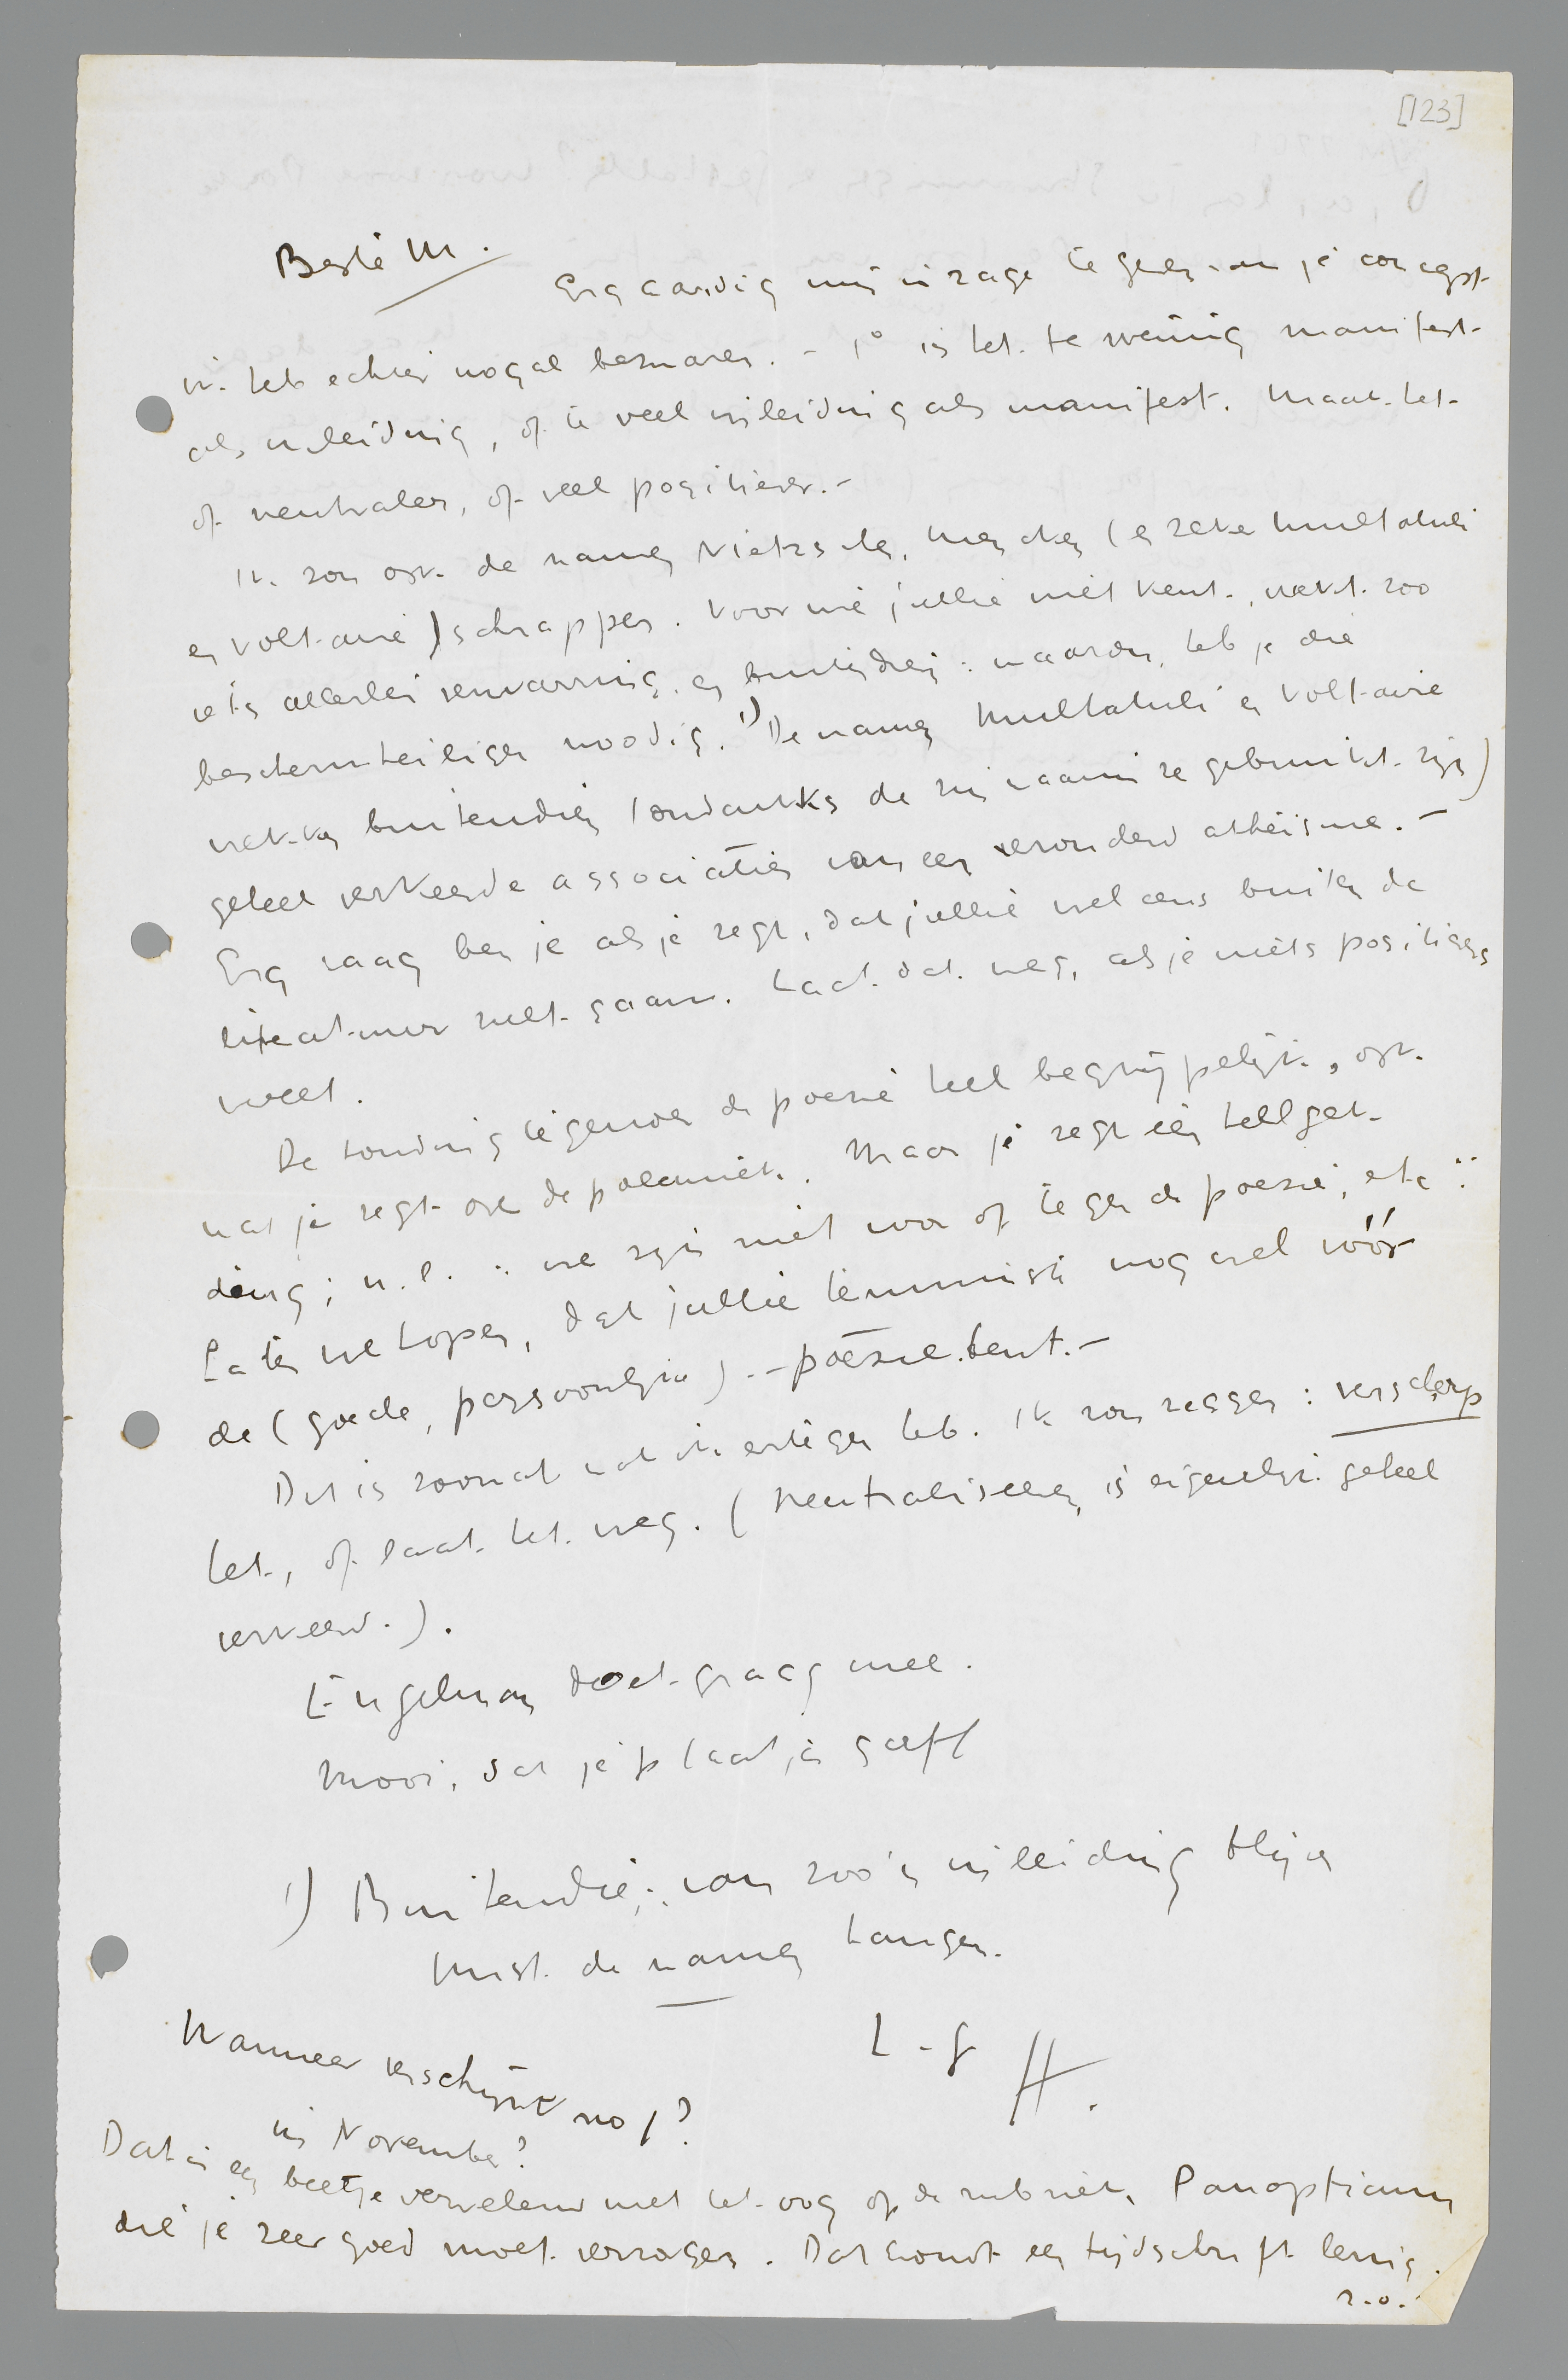 [123]
Beste M.
Erg aardig mij inzage te geven van je concept.
Ik heb echter nogal bezwaren. - 1° is het te weinig manifest
als inleiding, of te veel inleiding als manifest. Maak het
of neutraler, of veel positiever. -
Ik zou ook de namen Nietzsche, Mencken (en zeker Multatuli
en Voltaire) schrappen. Voor wie jullie niet kent, wekt zoo
iets allerlei verwarring, en buitendien: waarom heb je die
beschermheiligen noodig. 1) De namen Multatuli en Voltaire
wekken buitendien (ondanks de zin waarin ze gebruikt zijn)
geheel verkeerde associaties van een verouderd atheisme. -
Erg vaag ben je als je zegt, dat jullie wel eens buiten de
literatuur zult gaan. Laat dat weg, als je niets positievers
weet.
De houding tegenover de poëzie heel begrijpelijk, ook
wat je zegt over de polemiek. Maar je zegt één ding
n.l. : we zijn niet voor of tegen de poezie, etc.:
Laten we hopen, dat jullie tenminste nog wel vóór
de (goede, persoonlijke) - poëzie bent. -
Dit is zoowat wat ik ertegen heb. Ik zou zeggen: verscherp
het, of laat het weg. (Neutraliseeren is eigenlijk geheel
verkeerd.).
Engelman doet graag mee.
Mooi, dat je plaatje geeft
1) Buitendien: van zoo'n inleiding blijven
juist de namen hangen.
H.
Wanneer verschijnt no 1?
in November?
Dat is een beetje vervelend met het oog op de rubriek, Panopticum
die je zeer goed moet verzorgen. Dat houdt een tijdschrift lenig.
z.o.z.